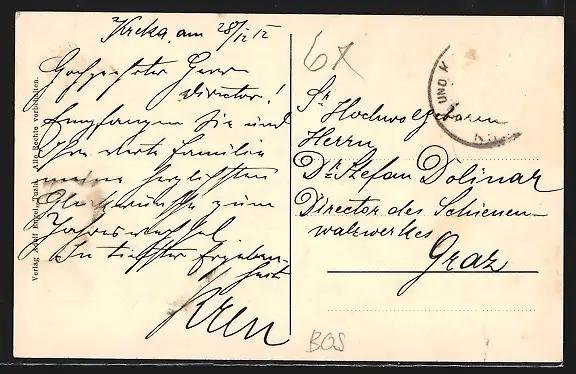 Kreka, am 28/12 12
Hochgeehrter Herr
Director!
Empfangen Sie und
Ihre werte Familie
meine herzlichsten
Glückwünsche zum
Jahreswechsel
In tiefster Ergeben-
heit
Kren
Verlag Adolf Engel, Tuzla. Alle Rechte vorbehalten.
Sr Hochwolgeboren
Herrn
Dr Stefan Dolinar
Director des Schienen-
walzwerkes
Graz
UND K
BOS